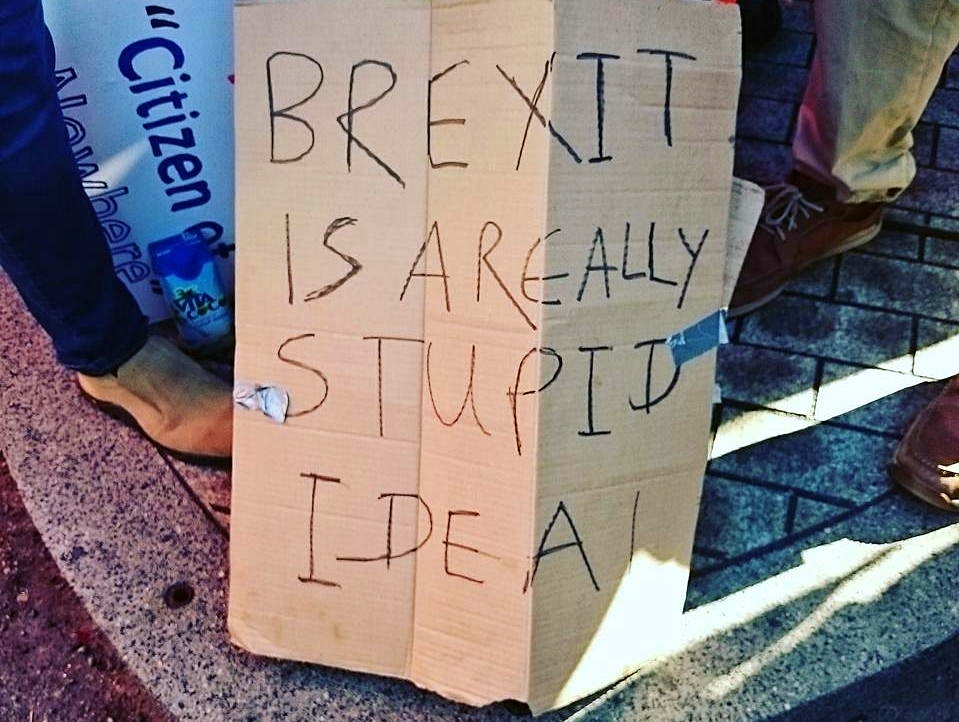 BREXIT
IS A REALLY
STUPID
IDEA!
"Citizen of
Nowhere"
VITA
COCO